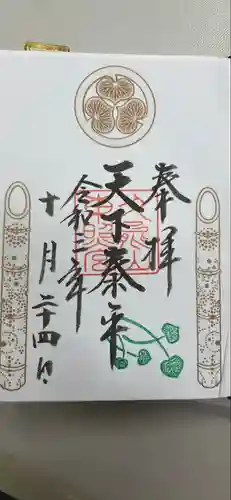 奉拝
天下泰平
令和三年
十月二十四日